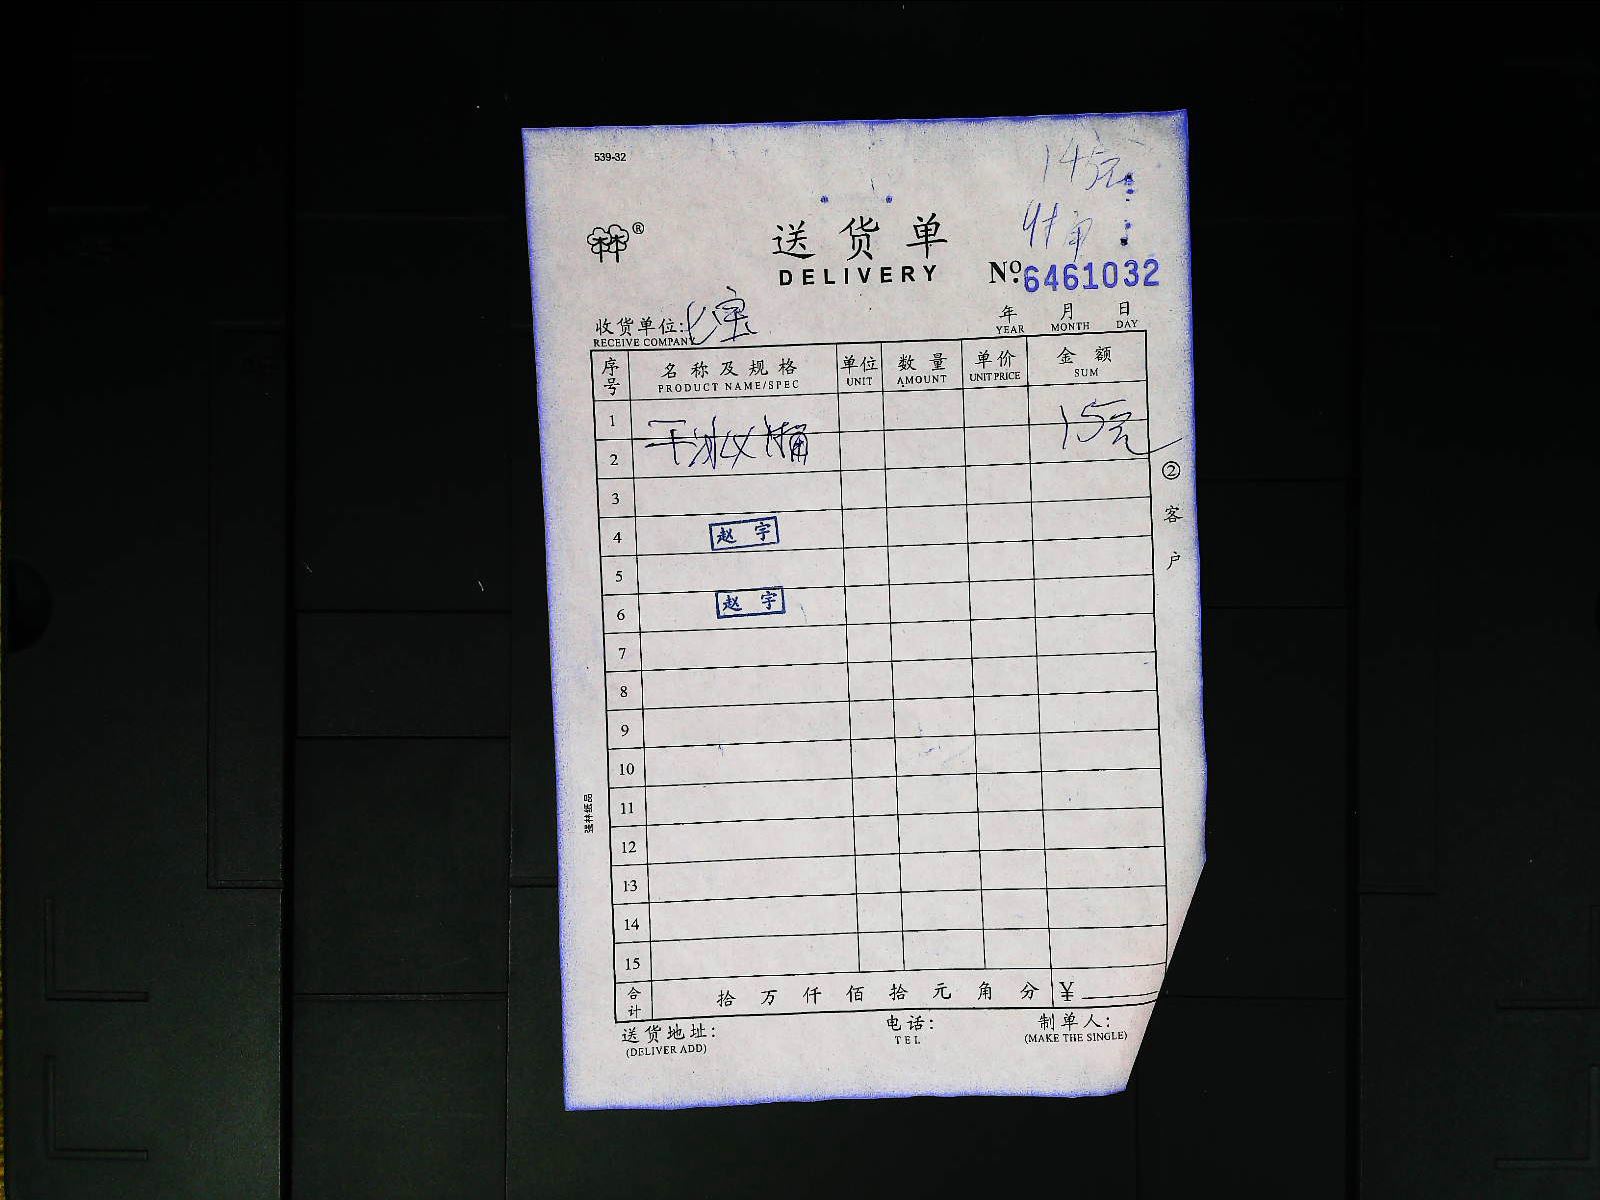 539-32
145元
送货单
DELIVERY
№6461032
收货单位:七宝
RECEIVE COMPANY
年 月 日
YEAR MONTH DAY
序号 名称及规格 单位 数量 单价 金额
PRODUCT NAME/SPEC UNIT AMOUNT UNIT PRICE SUM
1
15元
2
3
4 赵宇
5
6 赵宇
7
8
9
10
11
12
13
14
15
合计 拾万仟佰拾元角分 ¥
送货地址: 电话: 制单人:
(DELIVER ADD) TEL (MAKE THE SINGLE)
②客户
强林纸品